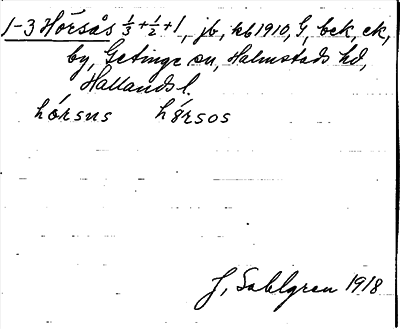 1-3 Hörsås 1/3+1/2+1, jb, kb 1910, G, bek, ek,
by, Getinge sn, Halmstads hd,
Hallands l.
hórsus hórsos
J, Sahlgren 1918